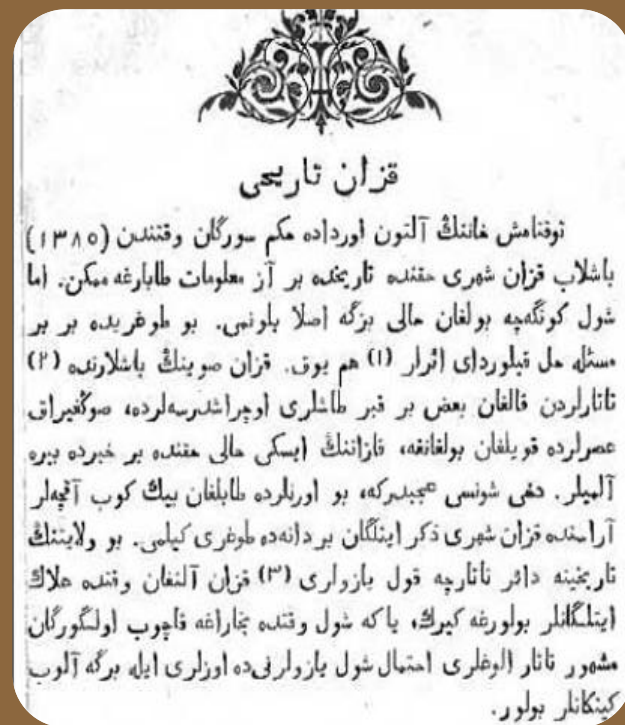 قزان تاريخى
توقتامش خاننڭ آلتون اورداده حكم سورگان وقتندن (١٣٨٥)
باشلاب قزان شهرى حقنده تاريخده بر آز معلومات طابارغه ممكن. اما
شول كونگه‌چه بولغان حالى بزگه اصلا بلونمى. بو طوغريده بر بر
مسئله حل قيلورداى اثرلر (١) هم يوق. قزان صوينڭ باشلارنده (٢)
تاتارلردن قالغان بعض بر قبر طاشلرى اوچراشدرسه‌لرده، صوڭغيراق
عصرلرده قويلغان بولغانغه، قازاننڭ ايسكى حالى حقنده بر خبرده بيره
آلميلر. دخى شونسى عجبدركه، بو اورنلرده طابلغان بيك كوب آقچه‌لر
آراسنده قزان شهرى ذكر ايتلگان بر دانه‌ده طوغرى كيلمى. بو ولايتنڭ
تاريخينه دائر تاتارچه قول يازولرى (٣) قزان آلنغان وقتده هلاك
ايتلگانلر بولورغه كيرك، ياكه شول وقتده بخاراغه قاچوب اولگورگان
مشهور تاتار الوغلرى احتمال شول يازولرنى‌ده اوزلرى ايله برگه آلوب
كيتكانلر بولور.